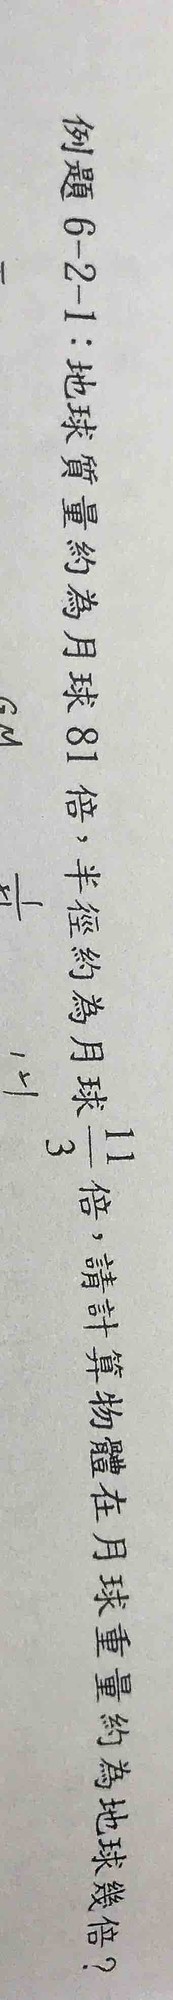 例題 6-2-1：地球質量約為月球 81 倍，半徑約為月球 11/3 倍，請計算物體在月球重量約為地球幾倍？
GM